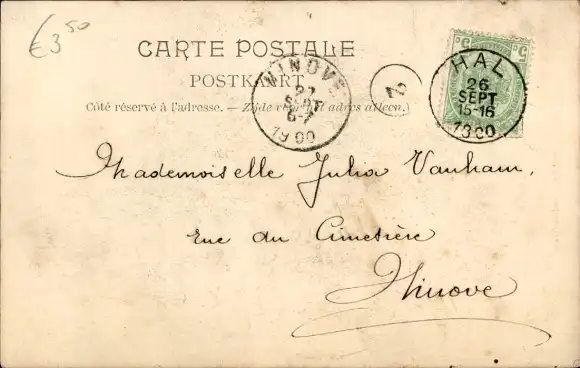 €3 50
CARTE POSTALE
POSTKAART
Côté réservé à l'adresse. — Zijde voor het adres alleen.)
NINOVE
27
SEPT
6-7
1900
2
5 5
HAL
26
SEPT
15-16
1900
Mademoiselle Julia Vanham,
rue du Cimetière
Ninove